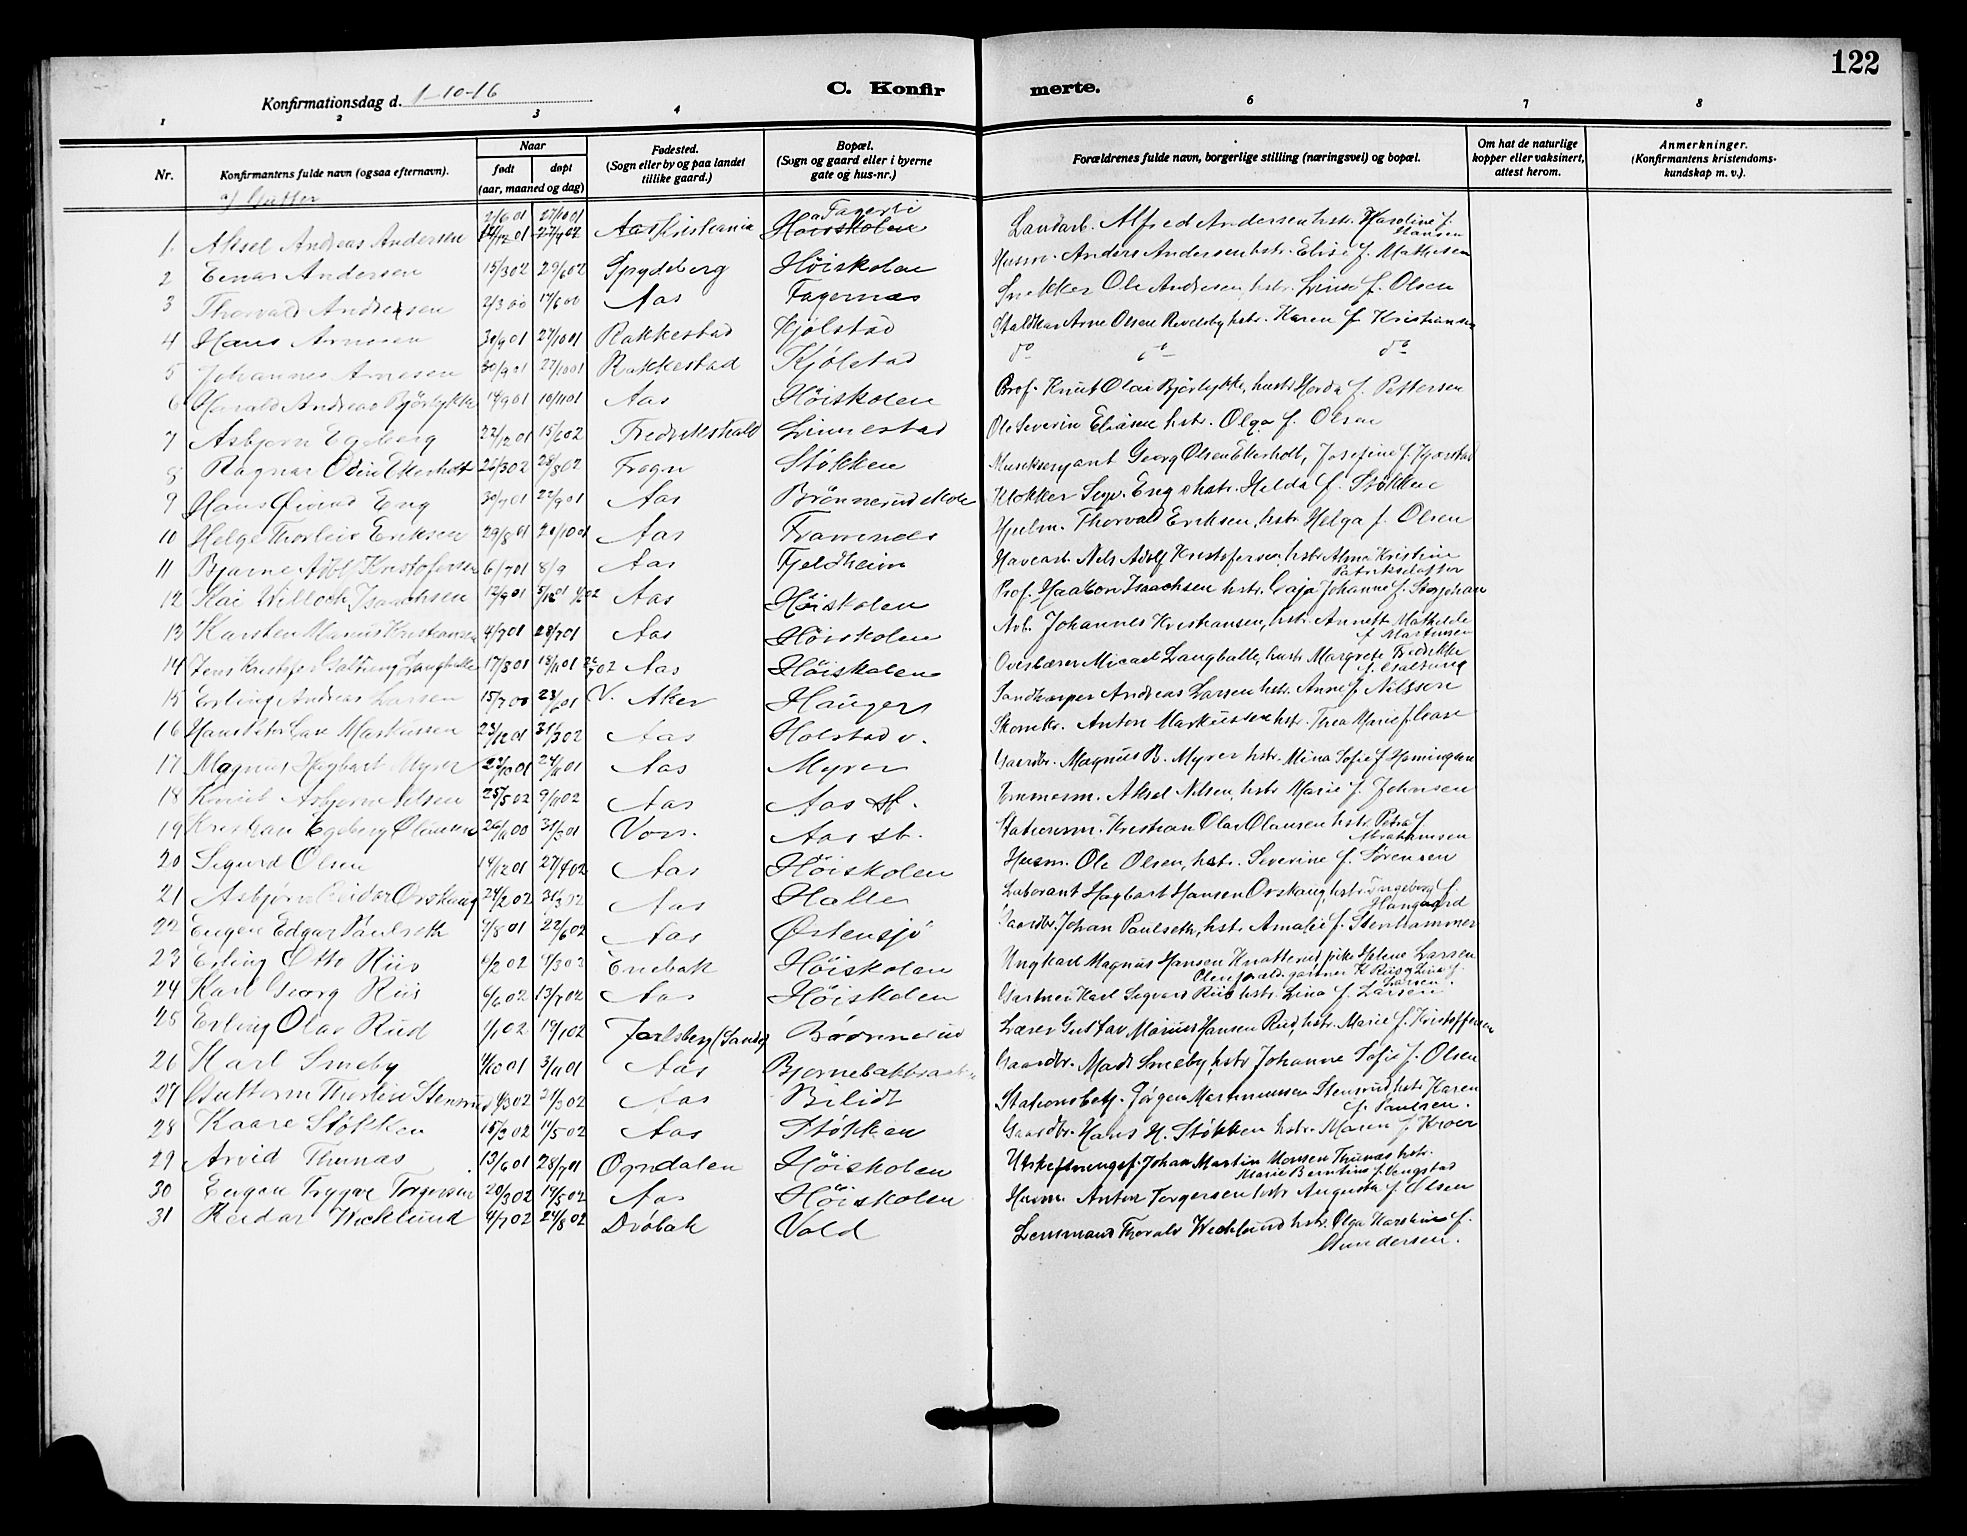 122
Konfirmationsdag d. 1-10-16
C. Konfirmerte.
1 2 3 4 6 7 8
Nr.
Konfirmantens fulde navn (ogsaa efternavn).
Naar
født
døpt
(aar, maaned og dag)
Fødested.
(Sogn eller by og paa landet
tillike gaard.)
Bopæl.
(Sogn og gaard eller i byerne
gate og hus-nr.)
Forældrenes fulde navn, borgerlige stilling (næringsvei) og bopæl.
Om hat de naturlige
kopper eller vaksinert,
attest herom.
Anmerkninger.
(Konfirmantens kristendoms-
kundskap m. v.).
a/ Gutter
2/6 01 27/10 01 Fagerli
1. Aksel Andreas Andersen Aas Kristiania Høiskolen Landarb. Alfred Andersen hstr. Karoline f. Hansen
2 Einar Andersen 15/3 02 29/6 02 Spydeberg Høiskolen Husm. Anders Andersen hstr. Elise f. Mathisen
3 Thorvald Andersen 2/3 00 17/6 00 Aas Fagernæs Snekker Ole Andersen, hstr. Lina f. Olsen
4 Hans Arnesen 30/9 01 27/10 01 Rakkestad Kjølstad Arne Olsen hstr. Karen f. Kristiansen
5 Johannes Arnesen 30/9 01 27/10 01 Rakkestad Kjølstad do do do
6 Harald Andreas Bjørlykke 14/9 01 10/11 01 Aas Høiskolen Prof. Knut Olai Bjørlykke, hustr. f. Pettersen
7 Asbjørn Egeberg 22/12 01 15/6 02 Fredrikshald Linnestad Ole Severin hstr. Olga f. Olsen
8 Ragnar Odin Ekerholt 26/3 02 28/8 02 Frogn Støkken Georg Olsen Ekerholt, Josefine f.
9 Hans Øivind Eng 30/7 01 22/9 01 Aas Brønnerud skole Klokker Sigv. Eng hstr. Hilda f. Støkken
10 Helge Thorleif Eriksen 29/8 01 20/10 01 Aas Framnes Hjulm. Thorvald Eriksen, hstr. Helga f. Olsen
11 Bjarne Adolf Kristofersen 6/7 01 8/9 Aas Fjeldheim Havearb. Nils Adolf Kristofersen, hstr. Alma Kristine
12 Kai Willoch Isaachsen 12/9 01 Aas Høiskolen Prof. Haakon Isaachsen hstr. Caja Johanne f. Storjohan
13 Karsten Marius Kristiansen 4/7 01 28/7 01 Aas Høiskolen Arb. Johannes Kristiansen, hstr. Annette Mathilde f. Martinsen
14 Jens Kristofer Galtung Langballe 17/8 01 Aas Høiskolen Overlærer Micael Langballe, hustr. Margrete Fredrikke f. Galtung
15 Erling Andreas Larsen 15/7 00 V. Aker Haugers Andreas Larsen hstr. Anne f. Nilssen
16 Hans Peter Markussen 23/12 01 31/3 02 Aas Holstad v. Skomkr. Anton Markussen hstr. Thea Marie f.
17 Magnus Hagbart Myrer 22/10 01 24/11 01 Aas Myrer Gaardbr. Magnus B. Myrer hstr. Mina Sofie f. Hemingsen
18 Knut Asbjørn Nilsen 25/5 02 9/11 02 Aas Aas st. Aksel Nilsen, hstr. Marie f. Johnsen
19 Kristian Egeberg Olausen 26/11 00 31/3 01 Vors. Aas st. Kristian Olav Olausen hstr. Petra f. Abrahamsen
20 Sigurd Olsen 14/12 01 27/4 02 Aas Høiskolen Husm. Ole Olsen, hstr. Severine f. Sørensen
21 Asbjørn Reidar Orskaug 24/2 02 31/3 02 Aas Halle Laborant Hagbart Hansen Orskaug, hstr. Ingeborg f. Haugaard
22 Eugen Edgar Paulseth 22/6 02 Aas Østensjø Gaardbr. Johan Paulseth, hstr. Amalie f. Stenhammer
23 Erling Otto Riis Enebak Høiskolen Ungkarl Magnus Hansen Knatterud pike Helene Larsen
gartner K Riis og Lina f. Larsen.
24 Karl Georg Riis 6/6 02 13/7 02 Aas Høiskolen Gartner Karl Sigvard Riis hstr. Lina f. Larsen
25 Erling Olav Rud 1/1 02 19/1 02 Jarlsberg (Sande) Brønnerud Lærer Gustav Marius Hansen Rud, hstr. Marie f. Kristoffersen
26 Karl Smeby 4/10 01 3/11 01 Aas Gaardbr. Mads Smeby, hstr. Johanne Sofie f. Olsen
27 Guttorm Thorleif Stensrud 4/3 02 31/3 02 Aas Bilidt Stationsbetj. Jørgen Martiniusen Stensrud hstr. Karen f. Paulsen.
28 Kaare Støkken 15/3 02 11/5 02 Aas Støkken Gaardbr. Hans H. Støkken hstr. Maren f. Kroer
29 Arvid Thunæs 13/6 01 28/7 01 Ogndalen Høiskolen Utskiftningsf. Johan Martin Monsen Thunæs hstr. Marie Berntine f. Vengstad
30 Eugen Trygve Torgersen 20/3 02 19/5 02 Aas Høiskolen Husm. Anton Torgersen hstr. Augusta f. Olsen
31 Reidar Wicklund 4/7 02 24/8 02 Drøbak Vold Lensmand Thorvald Wicklund hstr. Olga Karoline f. Gundersen.